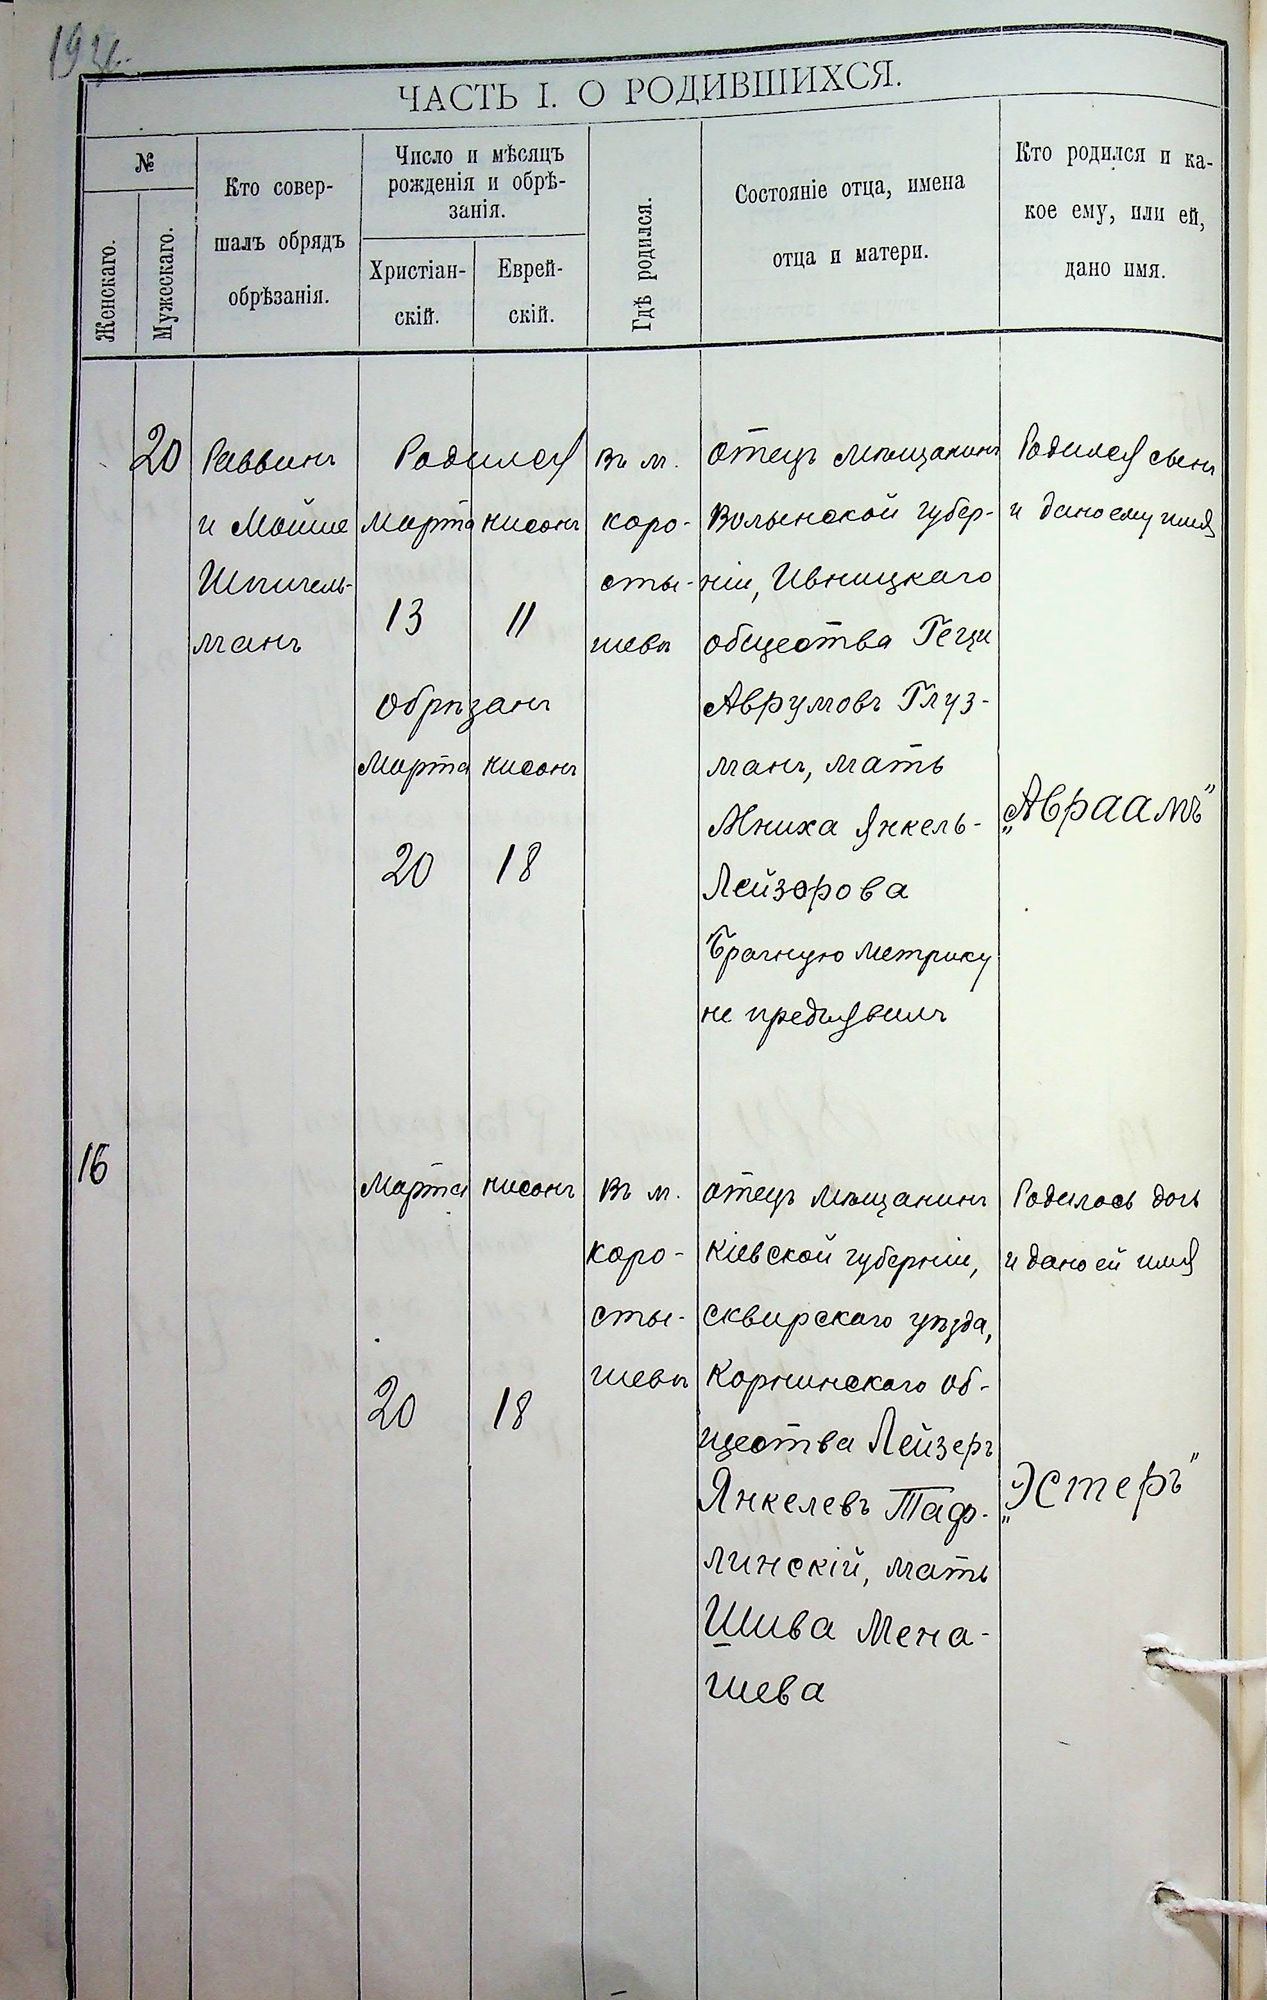 ЧАСТЬ I. О РОДИВШИХСЯ.
№
Женскаго.
Мужескаго.
Кто совер-
шалъ обрядъ
обрѣзанія.
Число и мѣсяцъ
рожденія и обрѣ-
занія.
Христіан-
скій.
Еврей-
скій.
Гдѣ родился.
Состояніе отца, имена
отца и матери.
Кто родился и ка-
кое ему, или ей,
дано имя.
20
Раввинъ
и Мойше
Шпигель-
манъ
Родился
Марта нисонъ
13 11
обрѣзанъ
Марта нисонъ
20 18
Въ м.
коро-
сты-
шевѣ
отецъ мѣщанинъ
Волынской губер-
ніи, Ивницкаго
общества Гецы
Аврумовъ Глуз-
манъ, мать
Мниха Янкель-
Лейзорова
Брачную метрику
не предъявилъ
Родился сынъ
и дано ему имя
„Авраамъ"
16
Марта нисонъ
20 18
Въ м.
коро-
сты-
шевѣ
отецъ мѣщанинъ
кіевской губерніи,
сквирскаго уѣзда,
Корнинскаго об-
щества Лейзеръ
Янкелевъ Таф-
линскій, мать
Шива Мена-
шева
Родилась дочь
и дано ей имя
„Эстеръ"